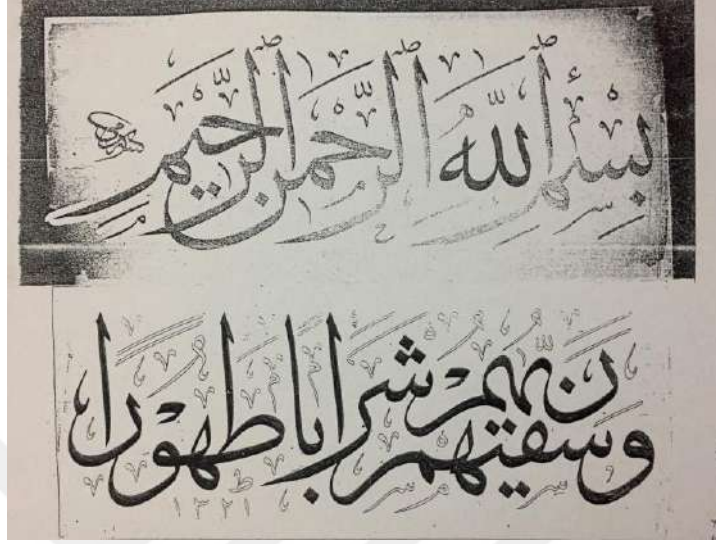 بِسْمِ اللهِ الرَّحْمنِ الرَّحِيمِ
وَسَقٰيهُمْ رَبُّهُمْ شَرَابًا طَهُورًا
١٣٢١